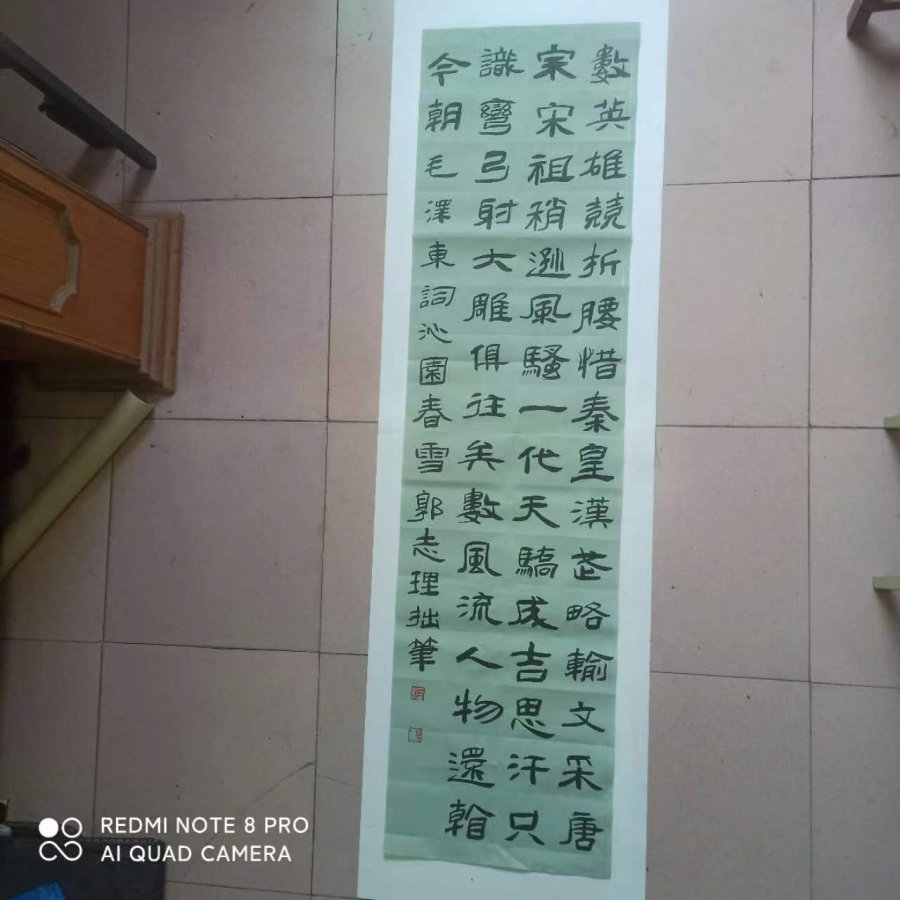 數英雄競折腰惜秦皇漢武略輸文采唐
宗宋祖稍遜風騷一代天驕成吉思汗只
識彎弓射大雕俱往矣數風流人物還看
今朝毛澤東詞沁園春雪郭志理拙筆
REDMI NOTE 8 PRO
AI QUAD CAMERA